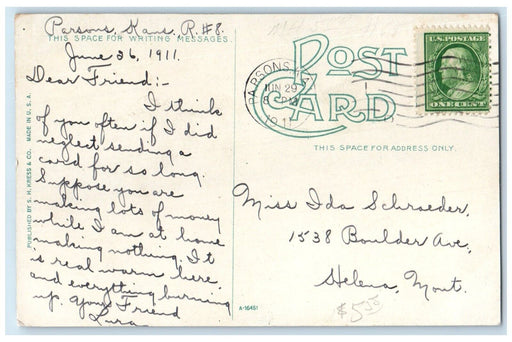 Parsons, Kans, R.#8.
THIS SPACE FOR WRITING MESSAGES
June 26, 1911.
Dear Friend;-
I think
of you often if I did
neglect sending a
card for so long.
Suppose you are
making lots of money
while I am at home
making nothing. It
is real warm here
and everything burning
up. Your Friend
Lura
PUBLISHED BY S. H. KRESS & CO. MADE IN U.S.A.
POST
CARD
PARSONS
JUN 29
1911
U.S. POSTAGE
ONE CENT
THIS SPACE FOR ADDRESS ONLY.
Miss Ida Schroeder,
1538 Boulder Ave,
Helena, Mont.
$5.50
A-16451